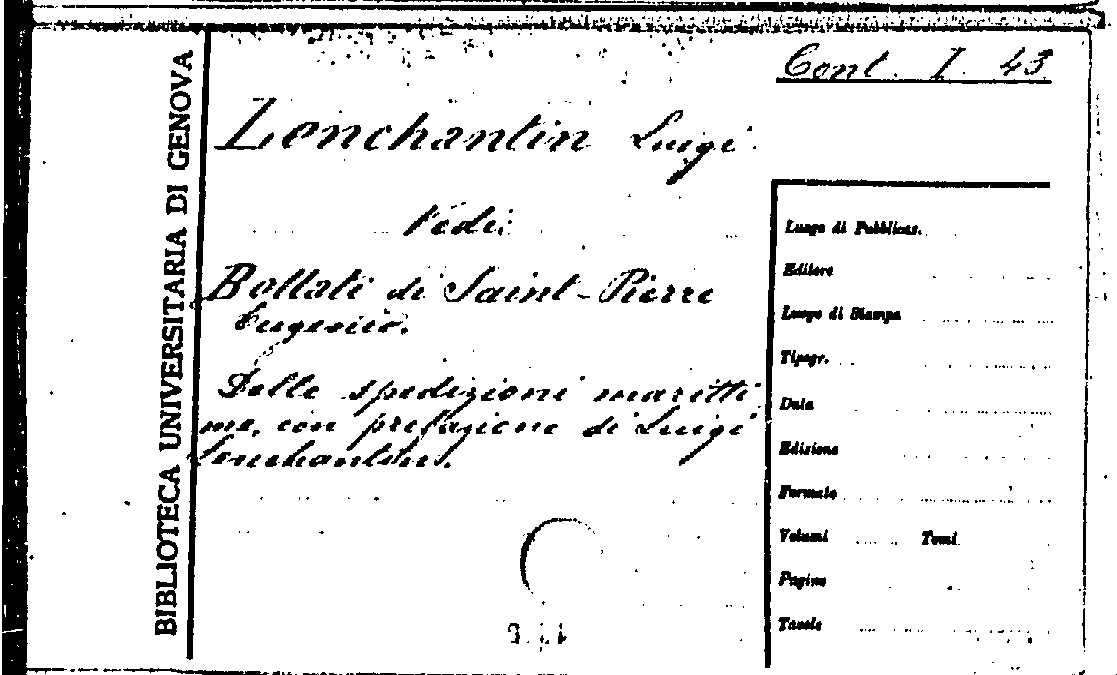 BIBLIOTECA UNIVERSITARIA DI GENOVA
Cont. I. 43
Lonchantin Luigi
Vedi:
Bollati di Saint-Pierre
Eugenio.
Delle spedizioni maritti
me, con prefazione di Luigi
Lonchantin.
Luogo di Pubblicaz.
Editore
Luogo di Stampa
Tipogr.
Data
Edizione
Formato
Volumi Tomi
Pagine
Tavole